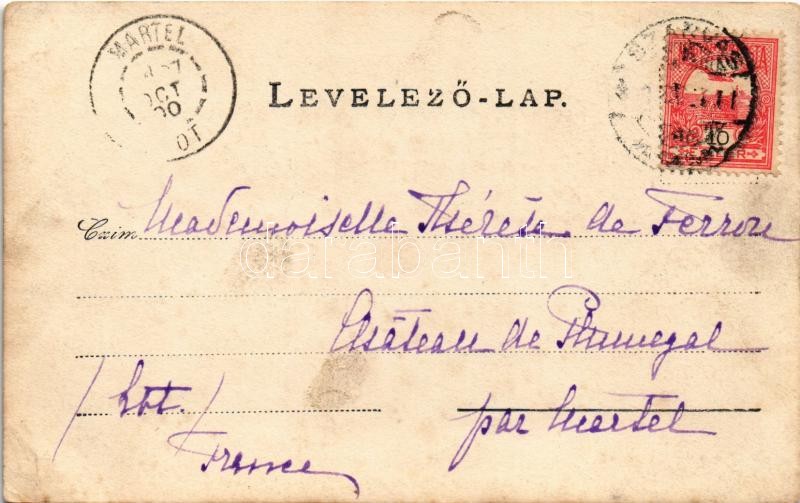 MARTEL
OCT
00
LOT
LEVELEZŐ-LAP.
10
Czim Mademoiselle Thérèse de Ferron
darabanth
Château de
/Lot./
par Martel
France